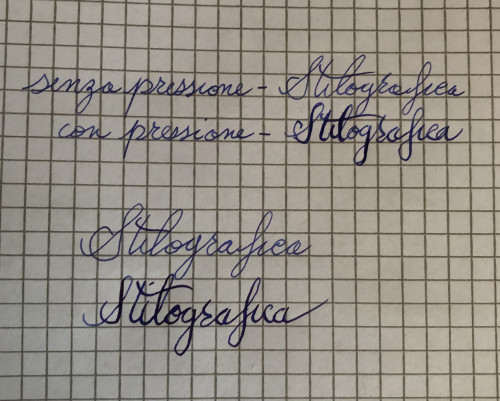 senza pressione - Stilografica
con pressione - Stilografica
Stilografica
Stilografica